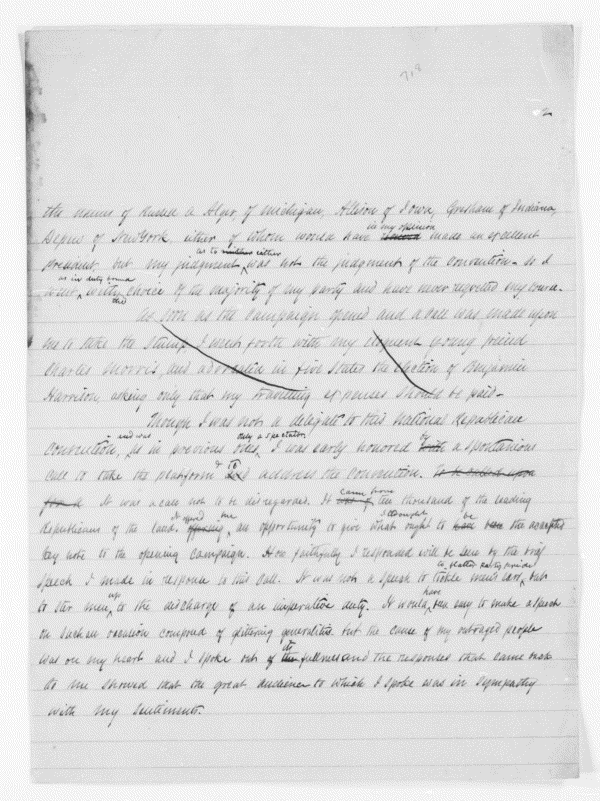 718
2
the names of Russel A Alger, of Michigan, Allison of Iowa, Gresham of Indiana,
in my opinion
Depew of New York, either of whom would have made an excellent
as to either
president, but my judgment was not the judgment of the convention. So I
as in duty bound
went with the choice of the majority of my party and have never regretted my course.
As soon as the campaign opened and a call was made upon
me to take the stump I went forth with my eloquent young friend
Charles Morris, and advocated in five States the election of Benjamin
Harrison, asking only that my travelling expenses should be paid.
Though I was not a delegate to this National Republican
and was only a spectator
Convention, as in previous ones, I was early honored by a spontanious
call to take the platform & to address the convention. To be called upon
came from
It was a call not to be disregarded. It the thousand of the leading
It gave me I thought be
Republicans of the land, an opportunity to give what ought to the accepted
key note to the opening campaign. How faithfully I responded will be seen by the brief
to flatter party pride
speech I made in response to this call. It was not a speech to tickle mens ears, but
up have
to stir men to the discharge of an imperative duty. It would been easy to make a speech
on such an occasion composed of glittering generalities but the cause of my outraged people
its
was on my heart and I spoke out of fullness and the responses that came back
to me showed that the great audience to which I spoke was in sympathy
with my sentiments.